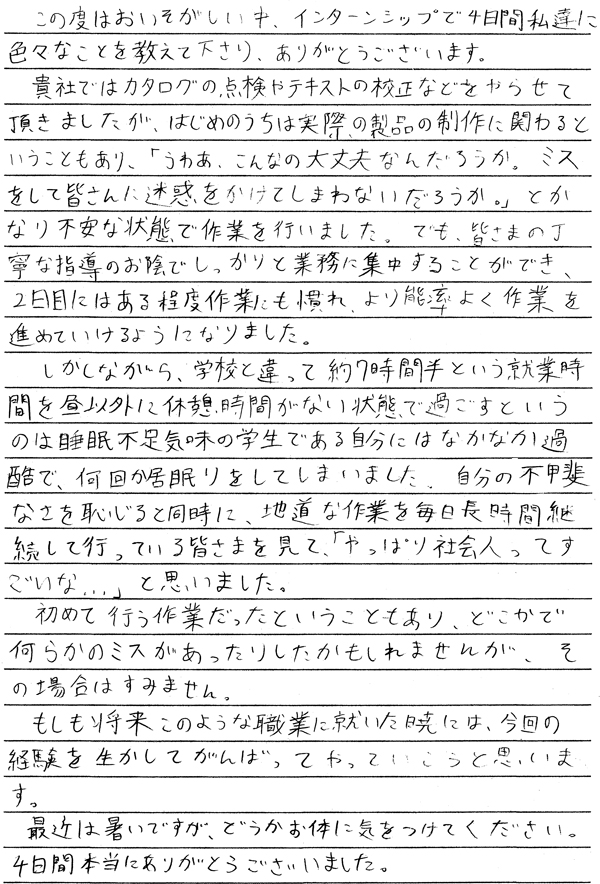 この度はおいそがしい中、インターンシップで4日間私達に
色々なことを教えて下さり、ありがとうございます。
貴社ではカタログの点検やテキストの校正などをやらせて
頂きましたが、はじめのうちは実際の製品の制作に関わると
いうこともあり、「うわあ、こんなの大丈夫なんだろうか。ミス
をして皆さんに迷惑をかけてしまわないだろうか。」とか
なり不安な状態で作業を行いました。でも、皆さまの丁
寧な指導のお陰でしっかりと業務に集中することができ、
2日目にはある程度作業にも慣れ、より能率よく作業を
進めていけるようになりました。
しかしながら、学校と違って約7時間半という就業時
間を昼以外に休憩時間がない状態で過ごすという
のは睡眠不足気味の学生である自分にはなかなか過
酷で、何回か居眠りをしてしまいました。自分の不甲斐
なさを恥じると同時に、地道な作業を毎日長時間継
続して行っている皆さまを見て、「やっぱり社会人ってす
ごいな...」と思いました。
初めて行う作業だったということもあり、どこかで
何らかのミスがあったりしたかもしれませんが、そ
の場合はすみません。
もしも将来このような職業に就いた暁には、今回の
経験を生かしてがんばってやっていこうと思いま
す。
最近は暑いですが、どうかお体に気をつけてください。
4日間本当にありがとうございました。